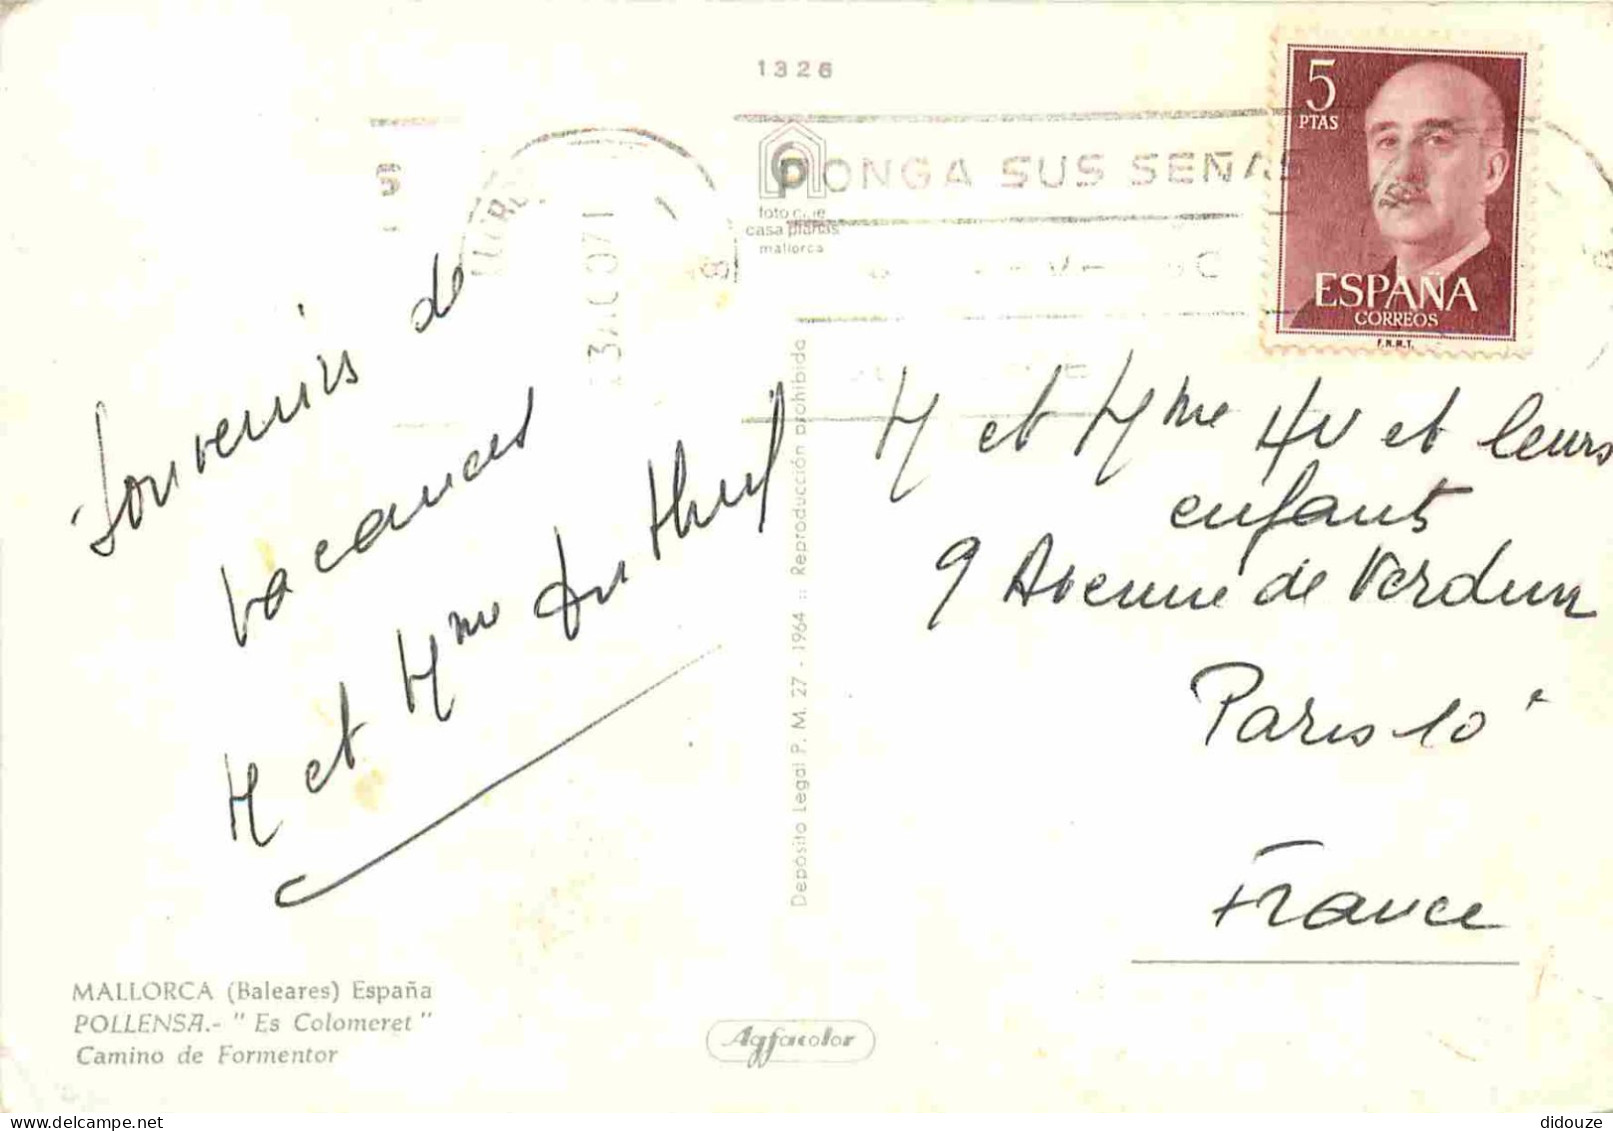 1326
PONGA SUS SEÑAS
foto cine
casa planas
mallorca
5
PTAS
ESPAÑA
CORREOS
F.N.M.T.
Souvenirs de
vacances
M et Mme
M et Mme et leurs
enfants
9 Avenue de Verdun
Paris 10e
France
Depósito Legal P. M. 27 - 1964 :: Reproducción prohibida
MALLORCA (Baleares) España
POLLENSA.- " Es Colomeret "
Camino de Formentor
Agfacolor
didouze